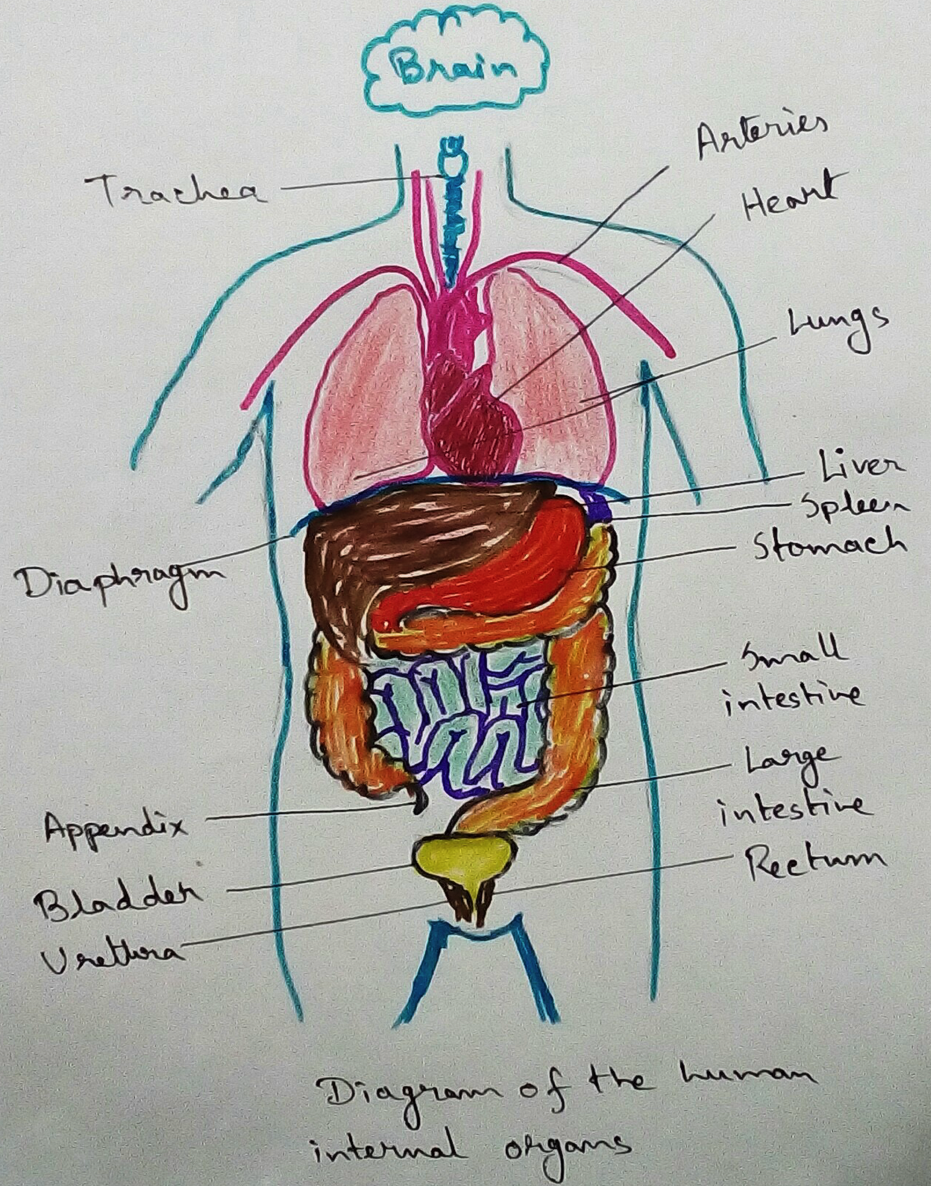 Brain
Arteries
Trachea
Heart
Lungs
Liver
Spleen
Stomach
Diaphragm
Small
intestine
Large
intestine
Appendix
Rectum
Bladder
Urethra
Diagram of the human
internal organs